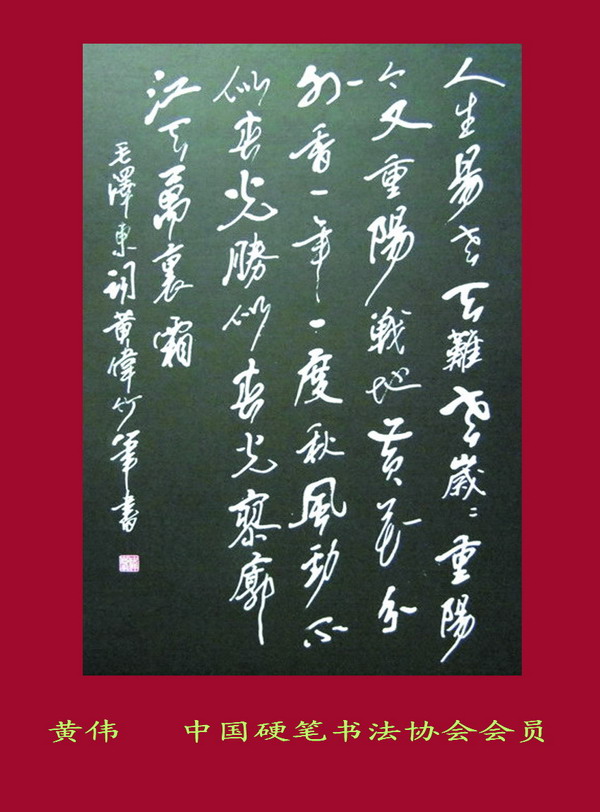 人生易老天難老歲々重陽
今又重陽戰地黃花分
外香一年一度秋風勁不
似春光勝似春光寥廓
江天萬裏霜
毛澤東詞黃偉竹筆書
黄伟 中国硬笔书法协会会员